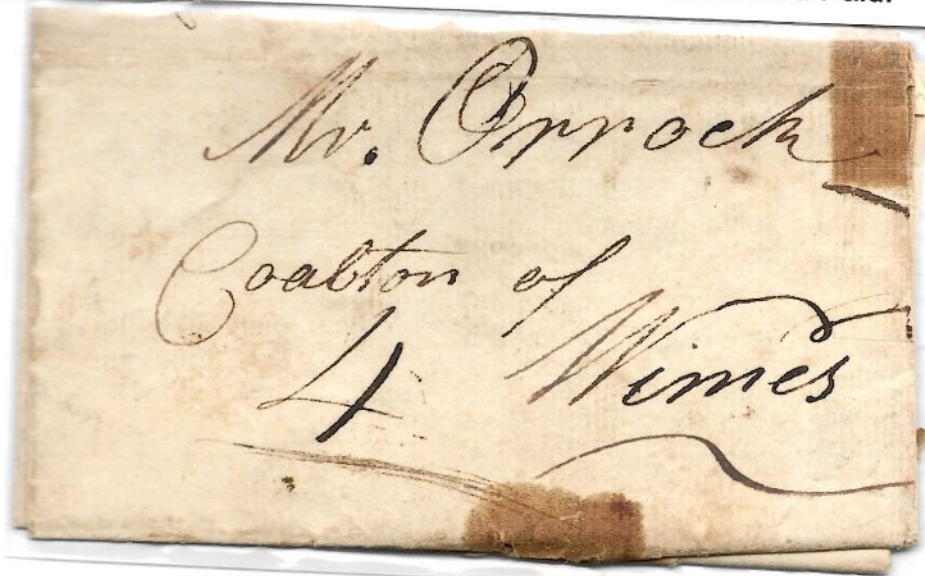 Mr. Orrock
Coalton of
4 Wimes